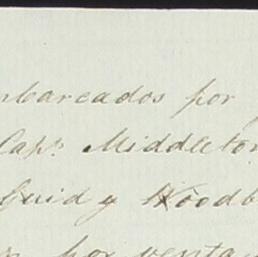 mbarcados por
Capn. Middleton
Guid y Woodb
por venta